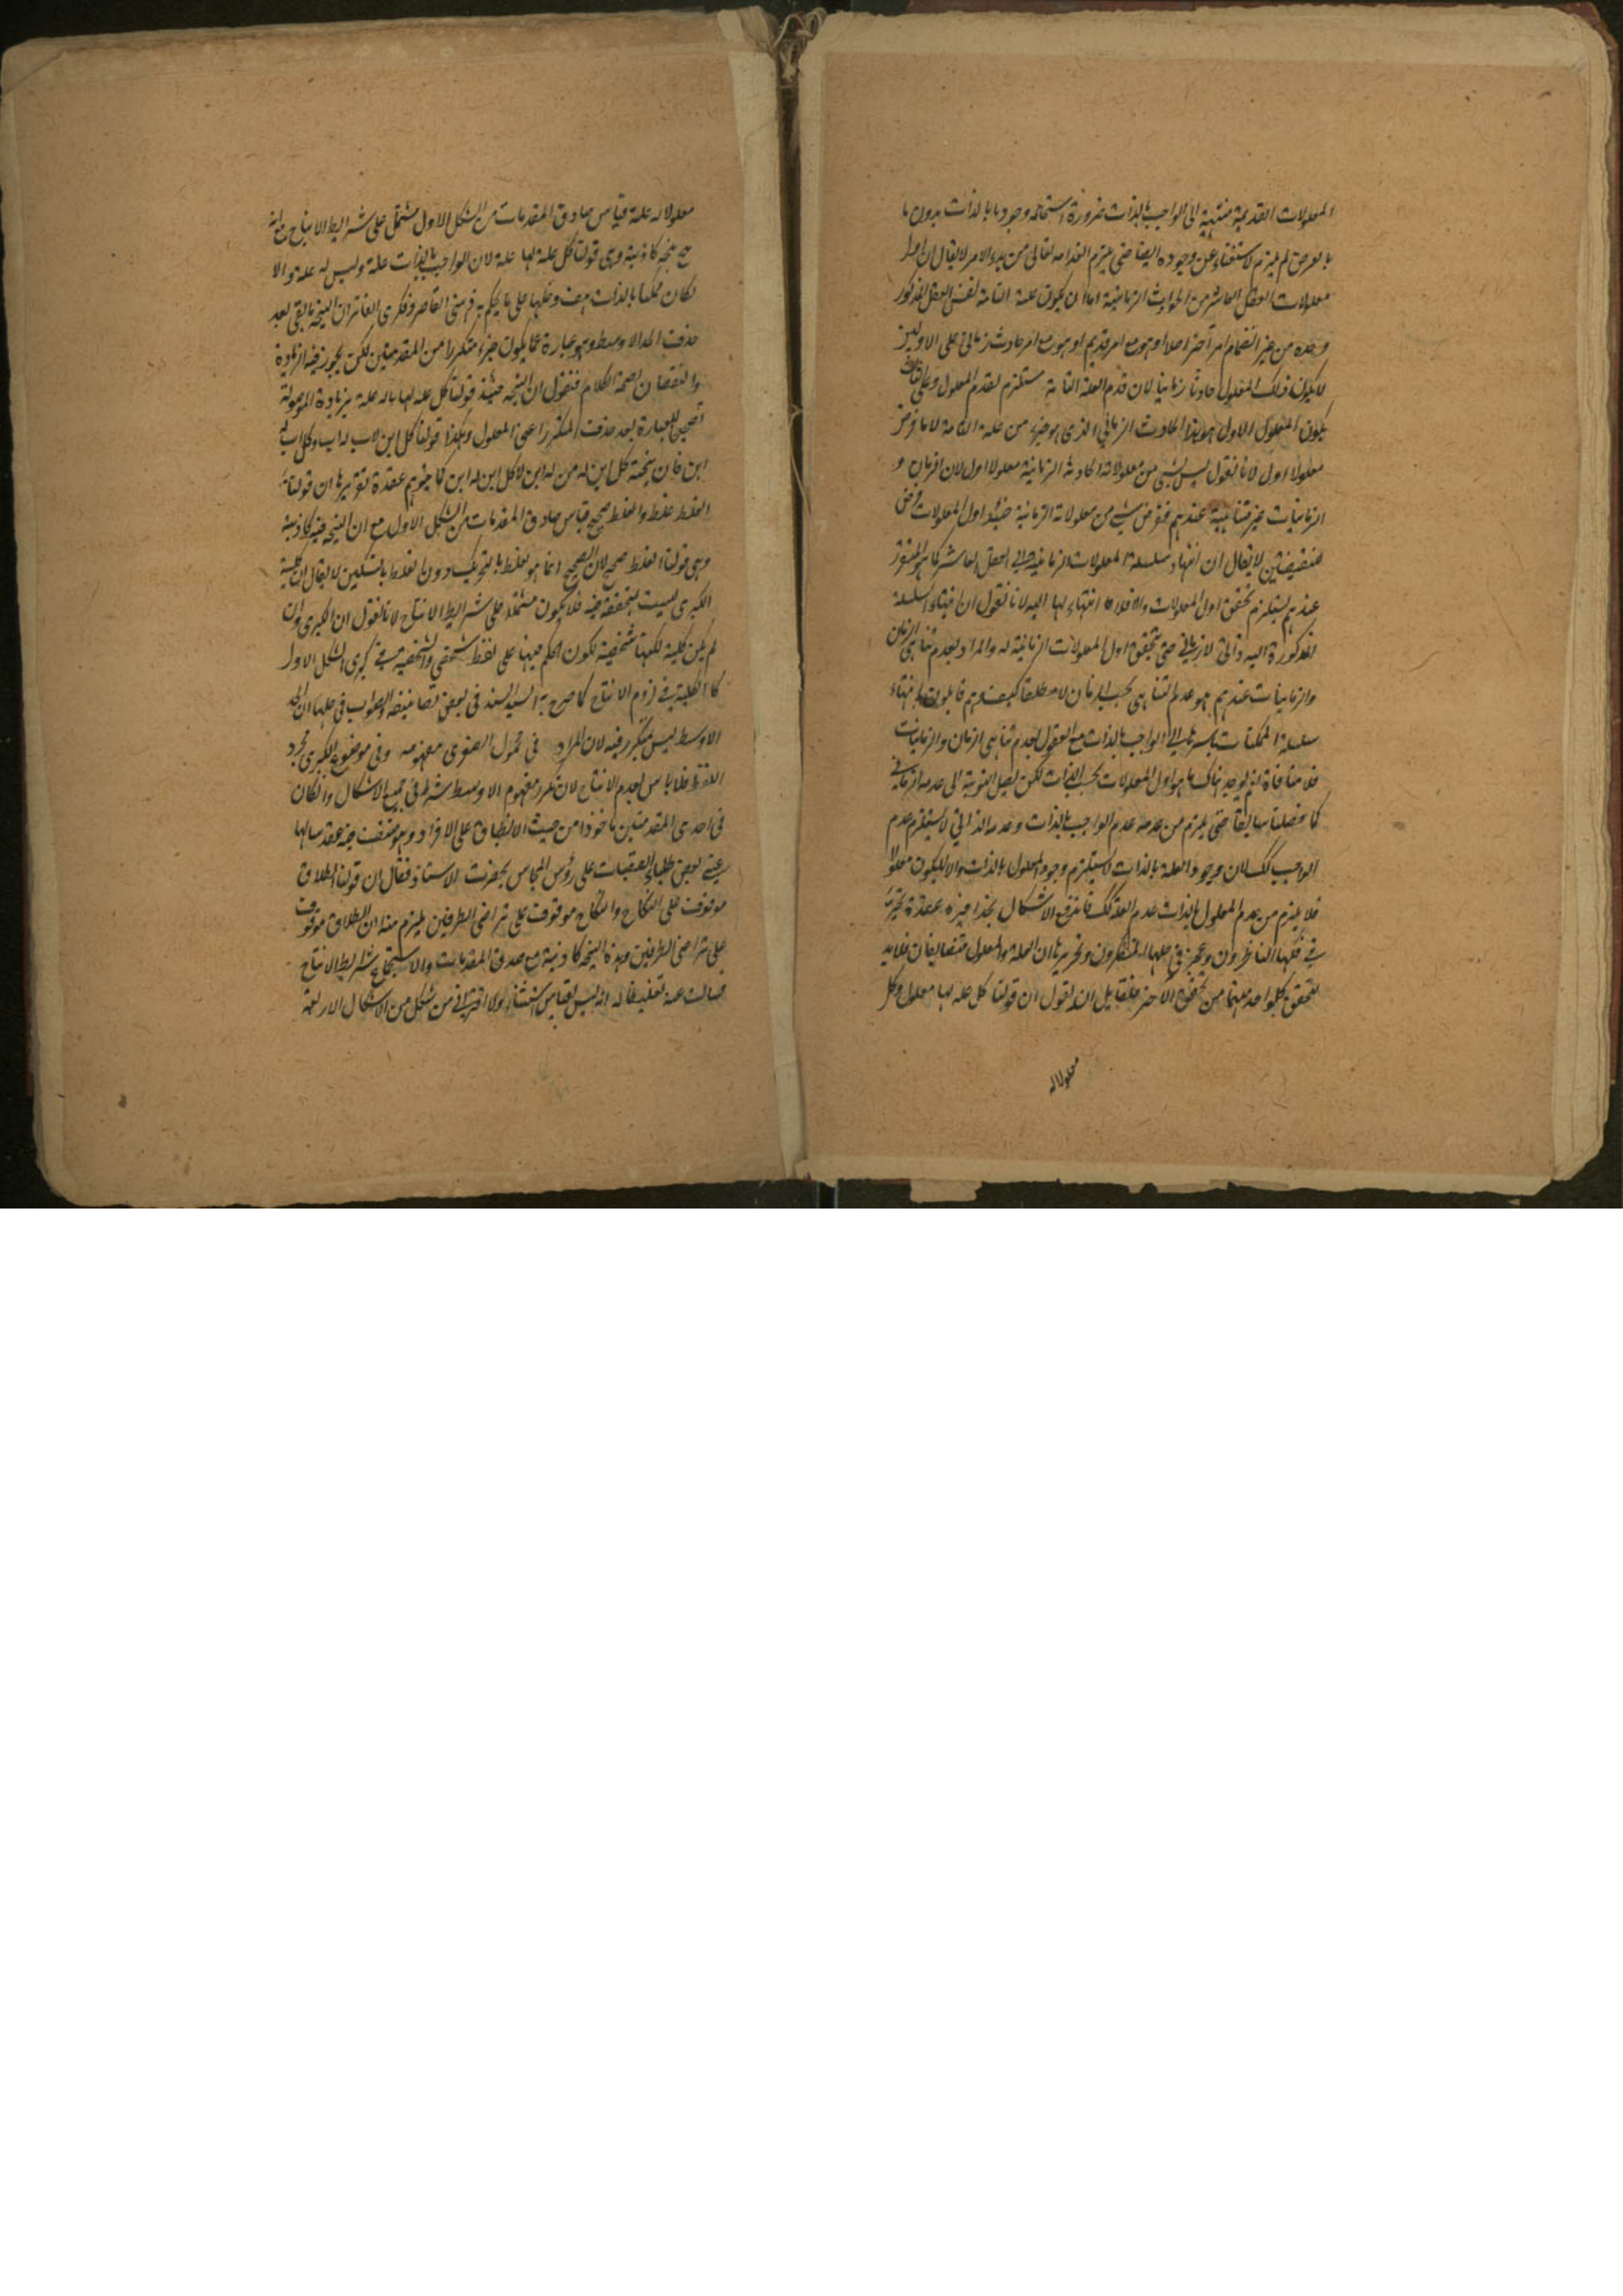 المعلولات القديمة منتهية الى الواجب بالذات ضرورة استحالة وجود ما بالذات بدون ما
بالعرض لم يلزم لاستغناء عن وجوده ايضا حتى يلزم انعدامه تعالى من بدء الامر لا يقال ان اول
معلولات العقل العاشر من الحوادث الزمانية اما ان يكون علته التامة نفس العقل المذكور
وحده من غير انضمام امر آخر اصلا او هو مع امر قديم او هو مع امر حادث زماني على الاولين
لا يكون ذلك المعلول حادثا زمانيا لان قدم العلة التامة مستلزم لقدم المعلول وعلى الثالث
يكون المعلول الاول هو هذا الحادث الزماني الذي هو جزء من علته التامة لا ما فرض
معلولا اول لانا نقول ليس شيء من معلولاته الحادثة الزمانية معلولا اول لان الزمان و
الزمانيات غير متناهية عندهم ففرض شيء من معلولاته الزمانية حينئذ اول المعلولات فرض
للنقيضين لا يقال ان انتهاء سلسلة المعلولات الزمانية الى العقل العاشر كما هو المقرر
عندهم يستلزم تحقق اول المعلولات والا فلا انتهاء لها اليه لانا نقول ان انتهاء السلسلة
المذكورة اليه ذاتي لا زماني حتى يتحقق اول المعلولات الزمانية له والمراد بعدم تناهي الزمان
والزمانيات عندهم هو عدم التناهي بحسب الزمان لا مطلقا كيف وهم قائلون بانتهاء
سلسلة الممكنات باسرها الى الواجب بالذات مع القول بعدم تناهي الزمان والزمانيات
فلا منافاة نعم يوجد هناك ما هو اول المعلولات بحسب الذات لكن لا يصل النوبة الى عدمه الزماني
كما فصلنا سابقا حتى يلزم من عدمه عدم الواجب بالذات وعدمه الذاتي لا يستلزم عدم
الواجب كك لان وجود العلة بالذات لا يستلزم وجود المعلول بالذات والا لا يكون معلولا
فلا يلزم من عدم المعلول بالذات عدم العلة كك فاندفع الاشكال بحذافيره عقدة تحيرت
في فكها الناظرون وعجز في حلها المتفكرون وتحريرها ان العلة والمعلول متضايفان فلا بد
لتحقق كل واحد منهما من تحقق الآخر فلقائل ان يقول ان قولنا كل علة لها معلول وكل
معلولا له
معلولا له علة قياس صادق المقدمات من الشكل الاول مشتمل على شرائط الانتاج مع انه
نتيجة كاذبة وهي قولنا كل علة لها علة لان الواجب بالذات علة وليس له علة والا
لكان ممكنا بالذات هف وحلها على ما يحكم به ذهني القاصر وفكري الفاتر ان النتيجة ما بقي بعد
حذف الحد الاوسط وهو عبارة عما يكون جزء متكررا من المقدمتين لكن يجوز فيه الزيادة
والنقصان لصحة الكلام فنقول ان النتيجة حينئذ قولنا كل علة لها ما له علة بزيادة الموصولة
تصحيحا للعبارة بعد حذف المتكرر اعني المعلول وهكذا قولنا كل ابن لاب له اب وكل اب له
ابن فان نتيجته كل ابن له من له ابن لا كل ابن له ابن كما يتوهم عقدة تقريرها ان قولنا
الغلط غلط والغلط صحيح قياس صادق المقدمات من الشكل الاول مع ان النتيجة فيه كاذبة
وهي قولنا الغلط صحيح لان الصحيح انما هو الغلط بالتحريك دون الغلط بالتسكين لا يقال ان كلية
الكبرى ليست بمتحققة فيه فلا يكون مشتملا على شرائط الانتاج لانا نقول ان الكبرى وان
لم يكن كلية لكنها شخصية لكون الحكم فيها على لفظ شخصي والشخصية في كبرى الشكل الاول
كالكلية في لزوم الانتاج كما صرح به السيد السند في بعض تصانيفه والصواب في حلها ان الحد
الاوسط ليس متكررا فيه لان المراد في محمول الصغرى مفهومه وفي موضوع الكبرى مجرد
اللفظ فلا باس لعدم الانتاج لان تكرر مفهوم الاوسط شرط في جميع الاشكال وان كان
في احدى المقدمتين ماخوذا من حيث الانطباق على الافراد وهو منتف فيه عقد سالها
عني بعض طلباء القصبات على رؤس المجالس بحضرت الاستاذ فقال ان قولنا الطلاق
موقوف على النكاح والنكاح موقوف على تراضي الطرفين يلزم منه ان الطلاق موقوف
على تراضي الطرفين وهذه النتيجة كاذبة مع صدق المقدمات والاستجماع شرائط الانتاج
فسالت عنه تغليطا له انه ليس بقياس استثناء ولا اقتراني من شكل من الاشكال الاربعة